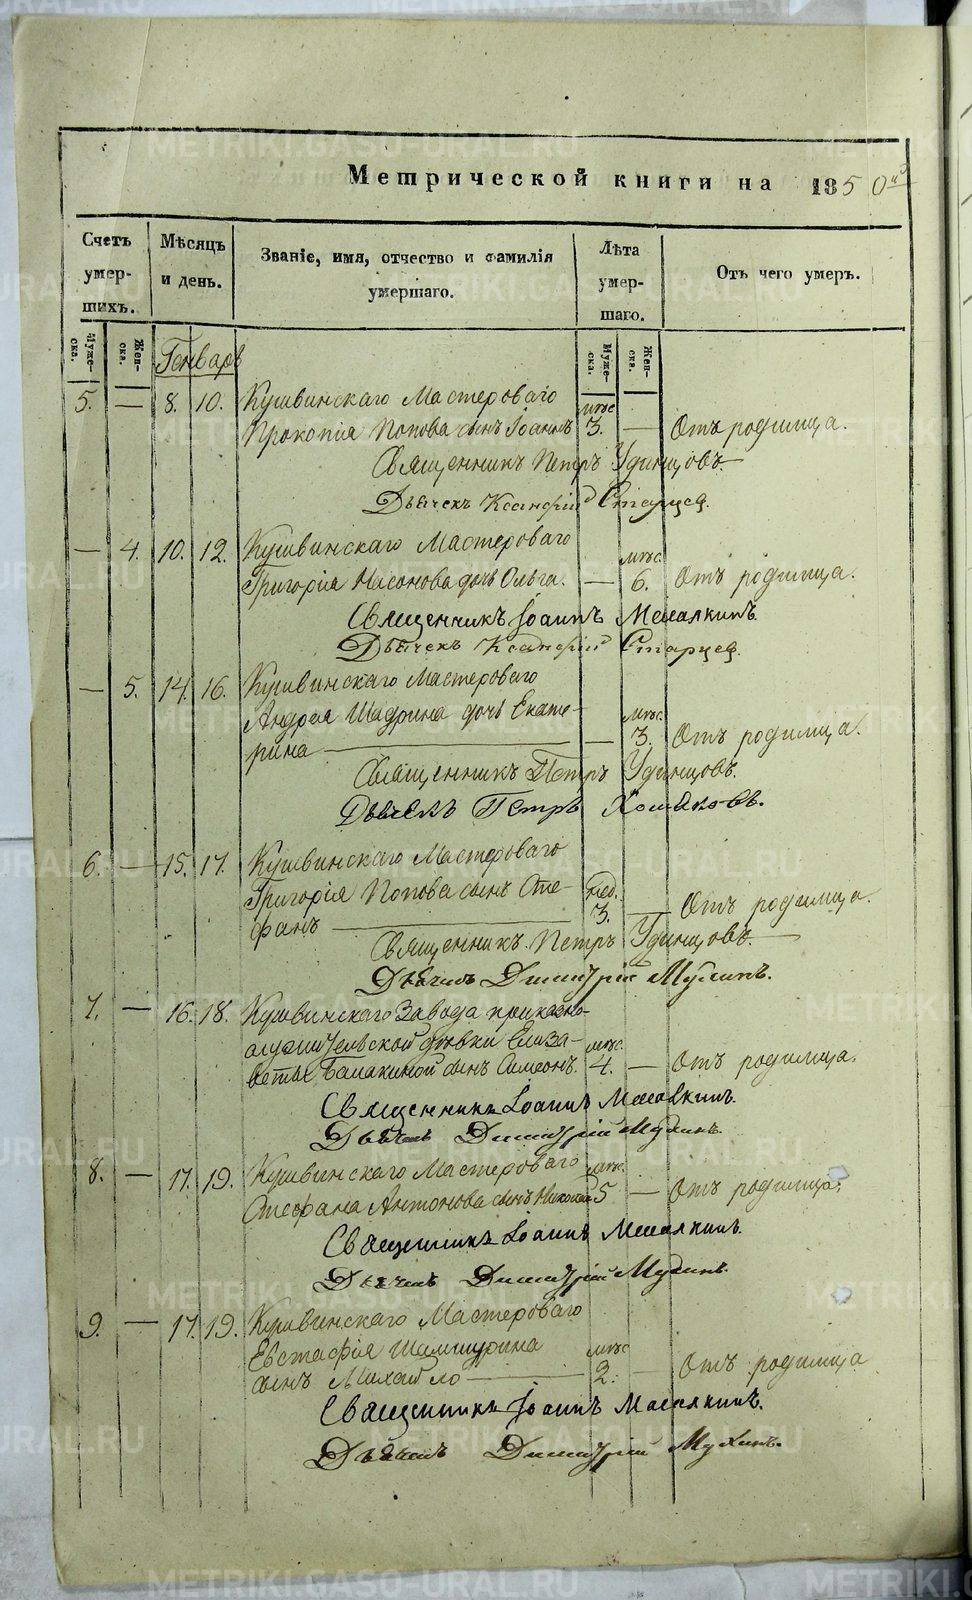 Метрической книги на 1850й
Счетъ умер- шихъ.
Мѣсяцъ и день.
Званіе, имя, отчество и фамилія умершаго.
Лѣта умер- шаго.
Отъ чего умеръ.
Муже- ска.
Жен- ска.
Муже- ска.
Жен- ска.
Генварь
5. — 8. 10. Кушвинскаго Мастероваго мѣс
Прокопія Попова сынъ Іоаннъ 3. — Отъ родимца.
Священникъ Петръ Удинцовъ
Дьячекъ Старцев
— 4. 10. 12. Кушвинскаго Мастероваго мѣс.
Григорія Насонова дочь Ольга. — 6. Отъ родимца.
Священникъ Іоаннъ
Дьячекъ Старцев
— 5. 14. 16. Кушвинскаго Мастероваго
Андрея Шадрина дочь Екате- мѣс.
рина — — 3. Отъ родимца.
Священникъ Петръ Удинцовъ.
Дьячекъ Петръ Хомяковъ.
6. — 15. 17. Кушвинскаго Мастероваго
Григорія Попова сынъ Сте- нед.
фанъ — 3. — Отъ родимца.
Священникъ Петръ Удинцовъ
Дьячекъ Димитрій Мухинъ.
7. — 16. 18. Кушвинскаго Завода приказно-
служительской дѣвки Елиза- мѣс.
веты сынъ Симеонъ. 4. — Отъ родимца.
Священникъ Іоаннъ
Дьячекъ Димитрій Мухинъ.
8. — 17. 19. Кушвинскаго Мастероваго мѣс.
Стефана Антонова сынъ Николай 5 — Отъ родимца.
Священникъ Іоаннъ
Дьячекъ Димитрій Мухинъ.
9. — 17. 19. Кушвинскаго Мастероваго
Евстафія Шамшурина мѣс
сынъ Михайло — 2. — Отъ родимца
Священникъ Іоаннъ
Дьячекъ Димитрій Мухинъ.
METRIKI.GASO-URAL.RU